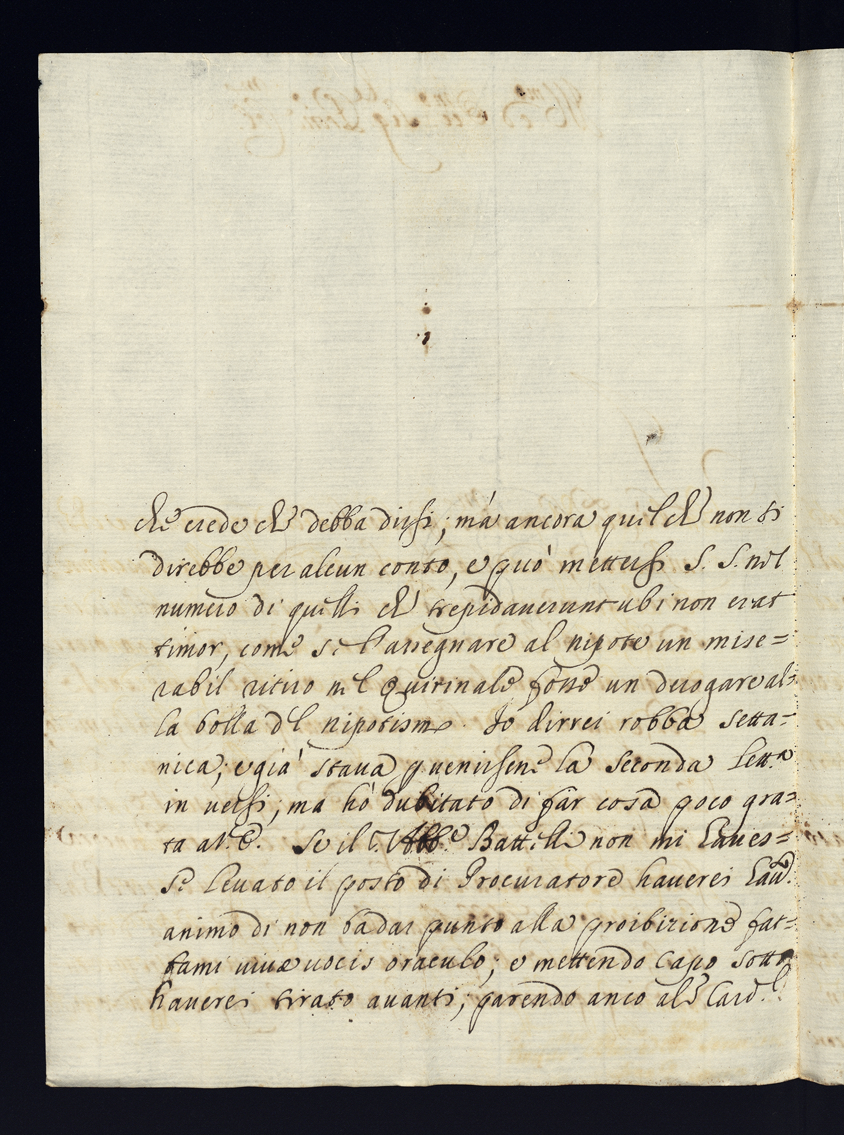 che crede che debba dirsi, mà ancora quel che non si
direbbe per alcun conto, e può mettersi S. S. nel
numero di quelli che trepidaverunt ubi non erat
timor, come se l'assegnare al nipote un mise=
rabil ritiro nel Quirinale fosse un derogare al=
la bolla del nipotismo. Io dirrei robba Satta=
nica, e già stava p venirsene la seconda lett.ra
in versi, ma hò dubitato di far cosa poco gra=
ta a V. E. Se il S. Abb.e Battelli non mi haves=
se levato il posto di Procuratore haverei hau.
animo di non badar punto alla proibizione fat=
tami vivæ vocis oraculo; e mettendo capo sotto
haverei tirato avanti, parendo anco al Card.l